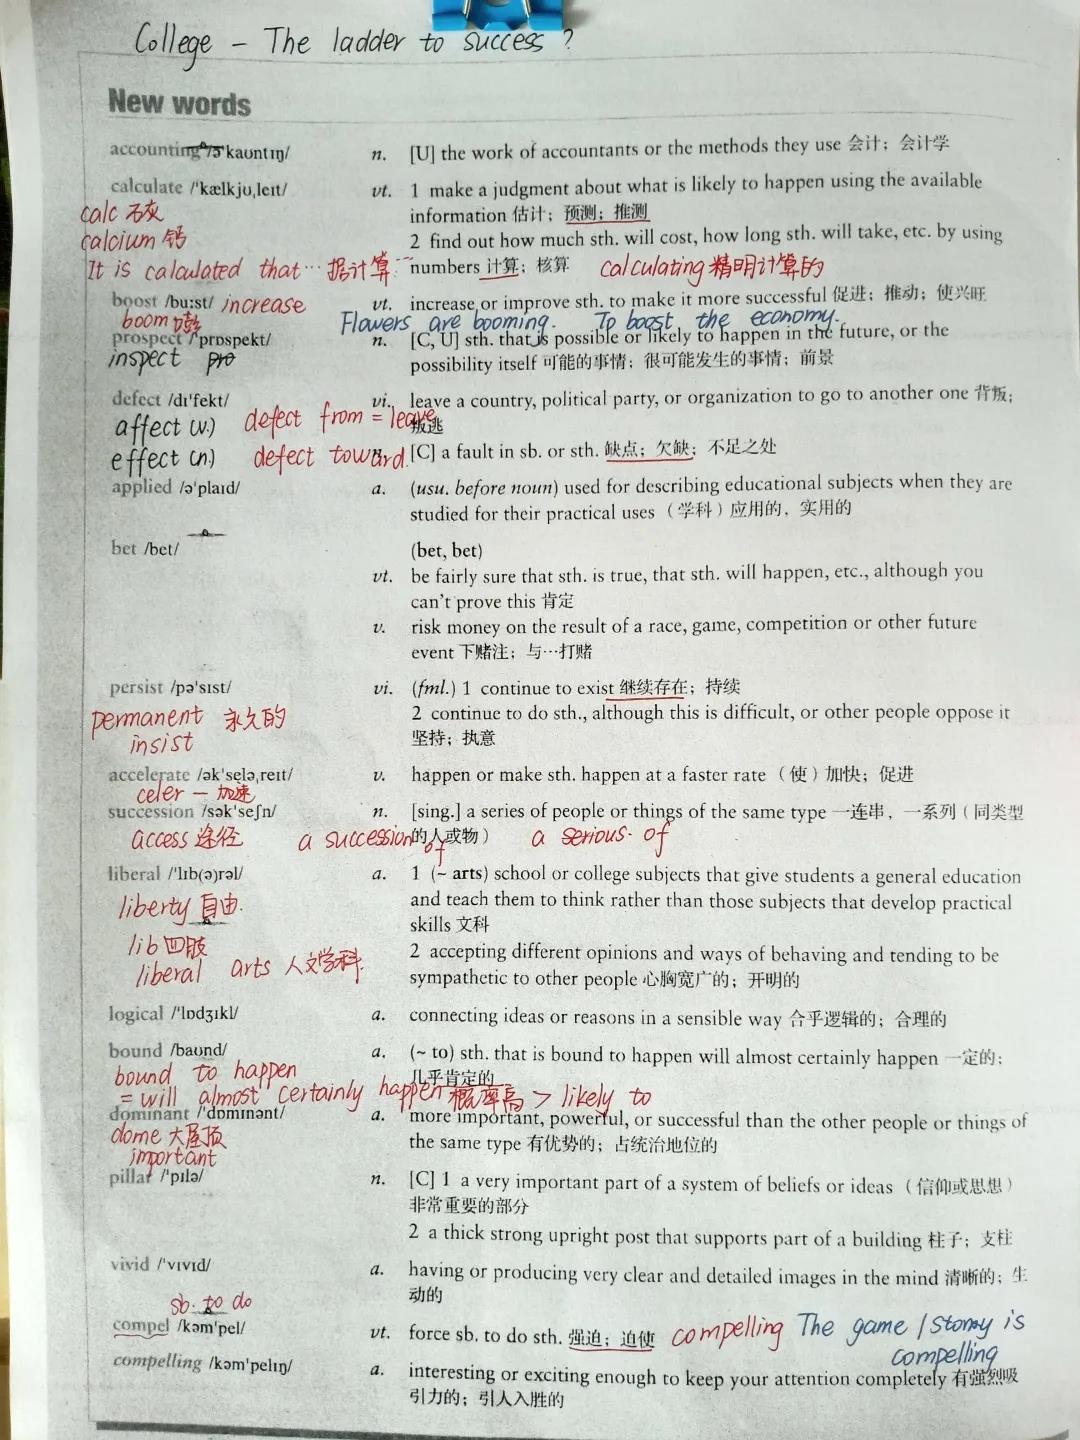 College - The ladder to success?
New words
accounting /ə'kaʊntɪŋ/ n. [U] the work of accountants or the methods they use 会计；会计学
calculate /'kælkjʊˌleɪt/ vt. 1 make a judgment about what is likely to happen using the available
calc 石灰 information 估计；预测；推测
calcium 钙 2 find out how much sth. will cost, how long sth. will take, etc. by using
It is calculated that… 据计算… numbers 计算；核算 calculating 精明计算的
boost /buːst/ increase vt. increase or improve sth. to make it more successful 促进；推动；使兴旺
boom Flowers are booming. To boost the economy.
prospect /'prɒspekt/ n. [C, U] sth. that is possible or likely to happen in the future, or the
inspect pro possibility itself 可能的事情；很可能发生的事情；前景
defect /dɪ'fekt/ vi. leave a country, political party, or organization to go to another one 背叛；
affect (v.) defect from = leave 叛逃
effect (n.) defect toward n. [C] a fault in sb. or sth. 缺点；欠缺；不足之处
applied /ə'plaɪd/ a. (usu. before noun) used for describing educational subjects when they are
studied for their practical uses（学科）应用的，实用的
bet /bet/ (bet, bet)
vt. be fairly sure that sth. is true, that sth. will happen, etc., although you
can't prove this 肯定
v. risk money on the result of a race, game, competition or other future
event 下赌注；与…打赌
persist /pə'sɪst/ vi. (fml.) 1 continue to exist 继续存在；持续
permanent 永久的 2 continue to do sth., although this is difficult, or other people oppose it
insist 坚持；执意
accelerate /ək'seləˌreɪt/ v. happen or make sth. happen at a faster rate（使）加快；促进
celer - 加速
succession /sək'seʃn/ n. [sing.] a series of people or things of the same type 一连串，一系列（同类型
access 途径 a succession of 的人或物） a serious of
liberal /'lɪb(ə)rəl/ a. 1 (~ arts) school or college subjects that give students a general education
liberty 自由. and teach them to think rather than those subjects that develop practical
skills 文科
lib 四肢 2 accepting different opinions and ways of behaving and tending to be
liberal arts 人文学科. sympathetic to other people 心胸宽广的；开明的
logical /'lɒdʒɪkl/ a. connecting ideas or reasons in a sensible way 合乎逻辑的；合理的
bound /baʊnd/ a. (~ to) sth. that is bound to happen will almost certainly happen 一定的；
bound to happen 几乎肯定的
= will almost certainly happen 概率高 > likely to
dominant /'dɒmɪnənt/ a. more important, powerful, or successful than the other people or things of
dome 大屋顶 the same type 有优势的；占统治地位的
important
pillar /'pɪlə/ n. [C] 1 a very important part of a system of beliefs or ideas（信仰或思想）
非常重要的部分
2 a thick strong upright post that supports part of a building 柱子；支柱
vivid /'vɪvɪd/ a. having or producing very clear and detailed images in the mind 清晰的；生
动的
sb. to do
compel /kəm'pel/ vt. force sb. to do sth. 强迫；迫使 compelling The game / Stomy is
compelling
compelling /kəm'pelɪŋ/ a. interesting or exciting enough to keep your attention completely 有强烈吸
引力的；引人入胜的